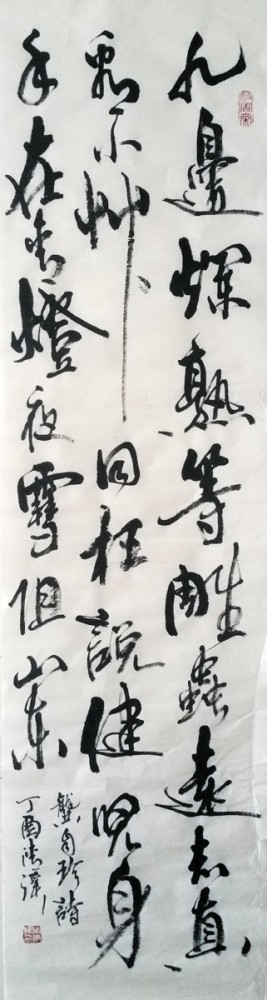 九邊爛熟等雕蟲遠志真
看小艸同枉說健兒身
手在青燈夜雪阻山東
龔自珍詩
丁酉